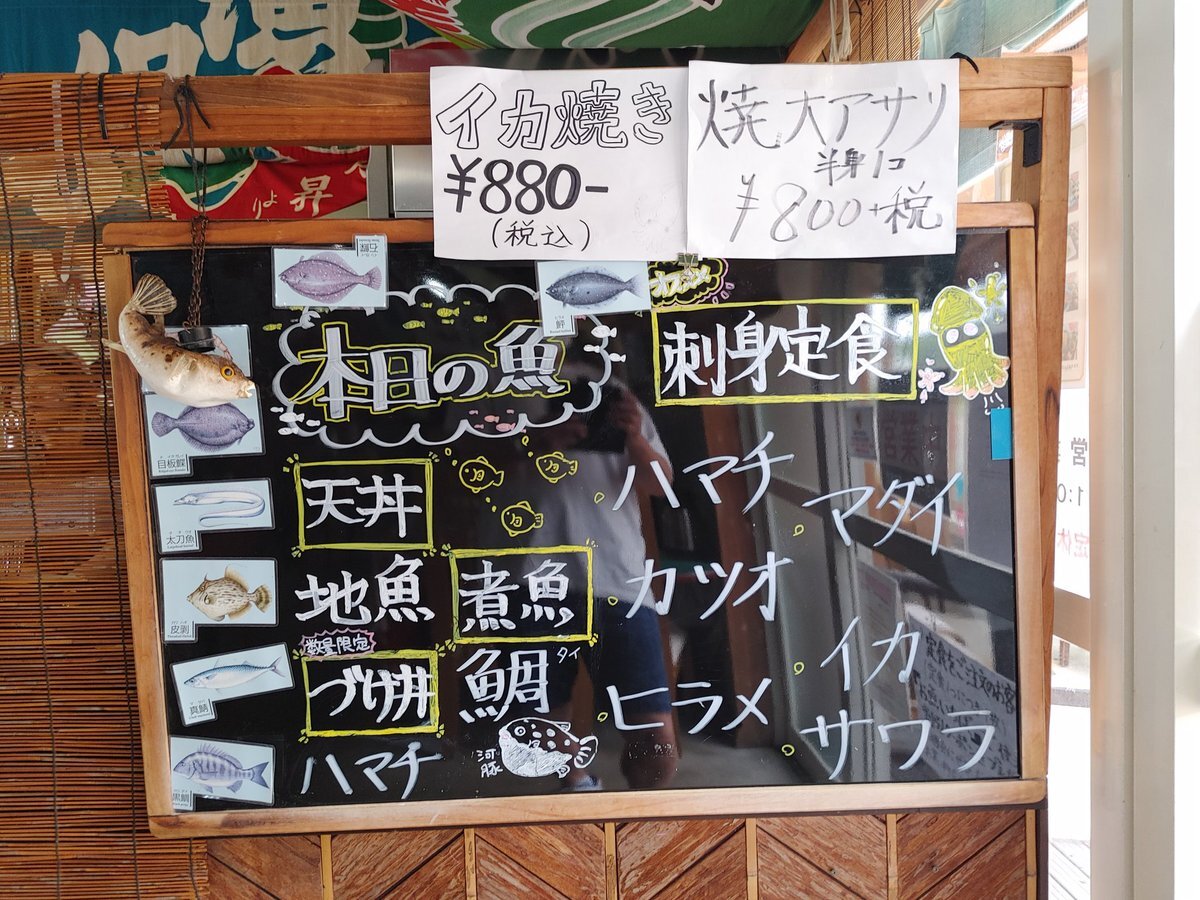 イカ焼き
¥880-
(税込)
焼大アサリ
半身1コ
¥800+税
昇
より
本日の魚
オススメ
刺身定食
天丼
地魚
数量限定
づけ丼
ハマチ
煮魚
鯛
タイ
河豚
ハマチ
カツオ
ヒラメ
マダイ
イカ
サワラ
目板鰈
太刀魚
皮剥
真鯖
黒鯛
石鰈
営業
定食をご注文のお客